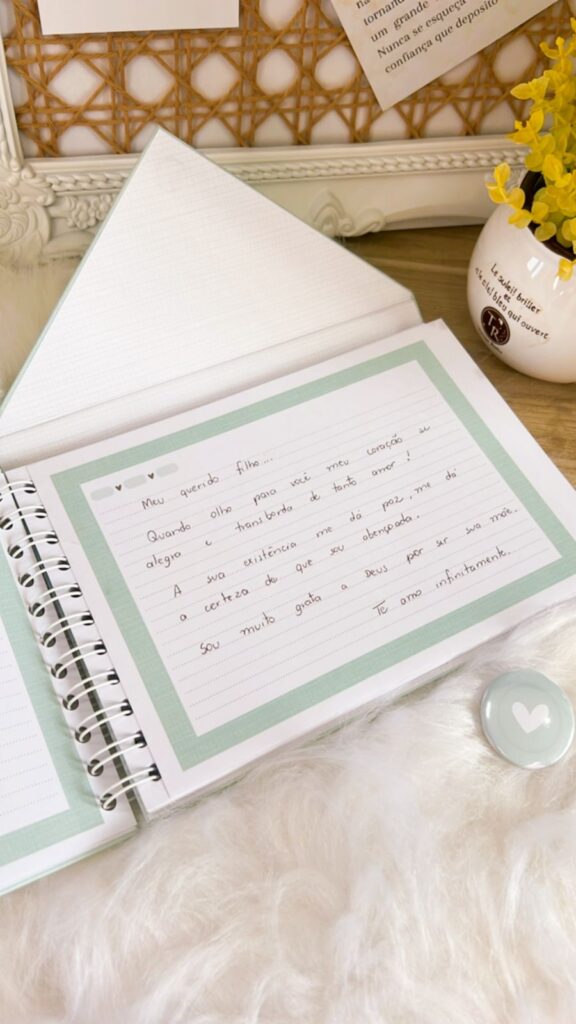 tornando
um grande
Nunca se esqueça
confiança que deposito
Le soleil briller
et
le ciel bleu qui ouvert
TR
Meu querido filho...
Quando olho para você meu coração se
alegra e transborda de tanto amor!
A sua existência me dá paz, me dá
a certeza de que sou abençoada.
Sou muito grata a Deus por ser sua mãe.
Te amo infinitamente.